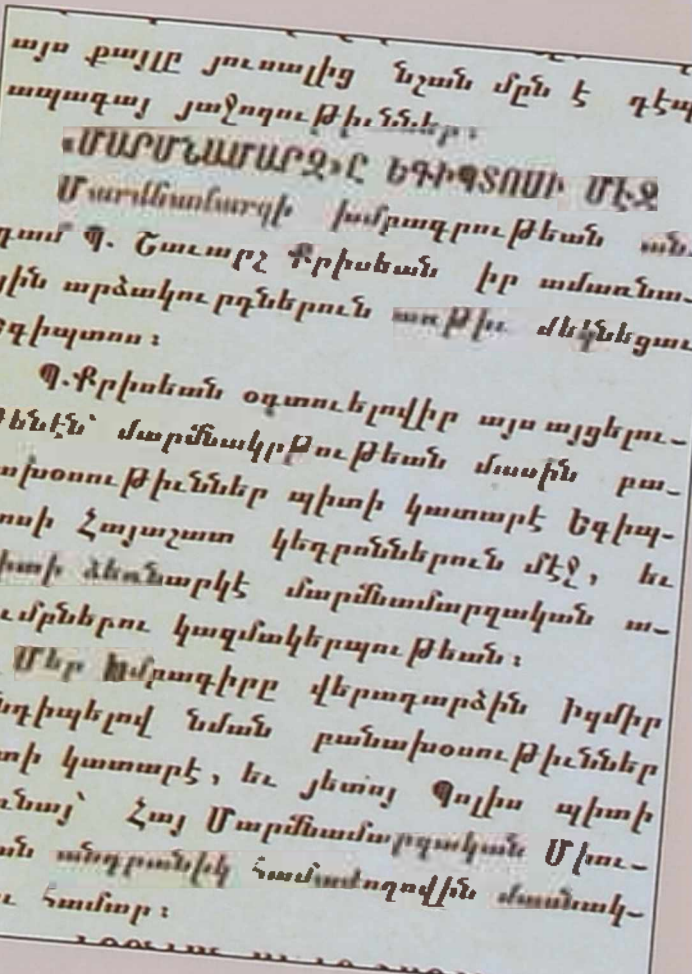 այս քայլը յուսալից նշան մըն է դէպ
ապագայ յաջողութիւններ։
«ՄԱՐՄՆԱՄԱՐԶ»Ը ԵԳԻՊՏՈՍԻ ՄԷՋ
Մարմնամարզի խմբագրութեան ան
դամ Պ. Շաւարշ Քրիսեան իր ամառնա-
յին արձակուրդներուն առթիւ մեկնեցաւ
Եգիպտոս։
Պ. Քրիսեան օգտուելովիր այս այցելու-
թենէն՝ մարմնակրթութեան մասին բա-
ախօսութիւններ պիտի կատարէ Եգիպ-
ոսի Հայաշատ կեդրոններուն մէջ, եւ
իտի ձեռնարկէ մարմնամարզական ա-
ւմբներու կազմակերպութեան։
Մեր խմբագիրը վերադարձին Իզմիր
նդիպելով նման բանախօսութիւններ
տի կատարէ, եւ յետոյ Պոլիս պիտի
ւնայ՝ Հայ Մարմնամարզական Միու-
ան անդրանիկ համաժողովին մասնակ-
ւ համար։